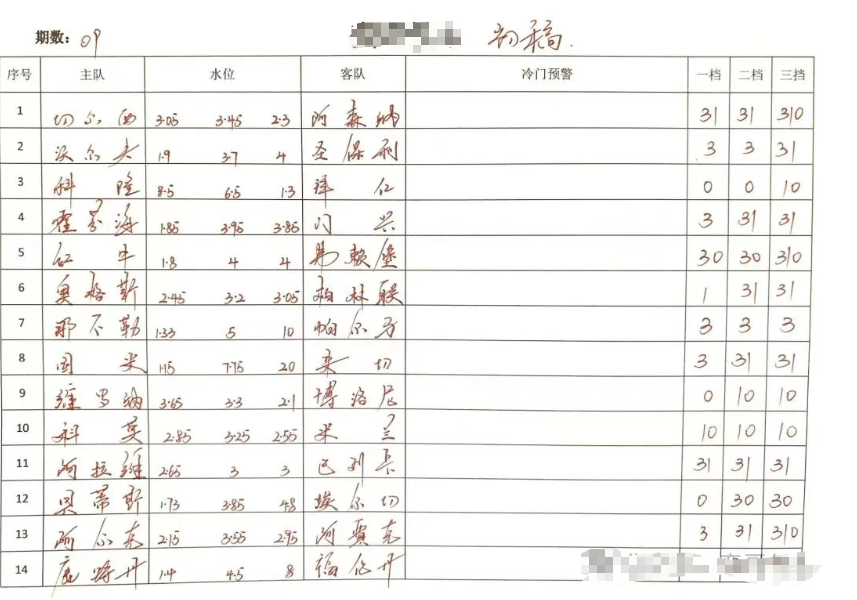 期数: 09 初稿.
序号 主队 水位 客队 冷门预警 一档 二档 三挡
1 切尔西 3.05 3.45 2.3 阿森纳 31 31 310
2 沃尔夫 1.9 3.7 4 圣保利 3 3 31
3 科隆 8.5 6.5 1.3 拜仁 0 0 10
4 霍芬海 1.85 3.95 3.85 门兴 3 31 31
5 红牛 1.8 4 4 弗赖堡 30 30 310
6 奥格斯 2.45 3.2 3.05 柏林联 1 31 31
7 那不勒 1.33 5 10 帕尔马 3 3 3
8 国米 1.15 7.75 20 莱切 3 31 31
9 维罗纳 3.65 3.3 2.1 博洛尼 0 10 10
10 科莫 2.85 3.25 2.55 米兰 10 10 10
11 阿拉维 2.65 3 3 巴列卡 31 31 31
12 贝蒂斯 1.73 3.85 4.8 埃尔切 0 30 30
13 阿尔克 2.15 3.55 2.95 阿贾克 3 31 310
14 鹿特丹 1.4 4.5 8 福伦丹